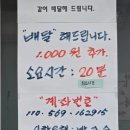 같이 배달해 드립니다.
"배달" 해드립니다.
1,000원 추가
소요시간: 20분
"계좌번호"
110-569-162915